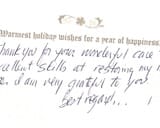 Warmest holiday wishes for a year of happiness
Thank you for your wonderful care
excellent skills at restoring my
I am very grateful to you
Best regards,